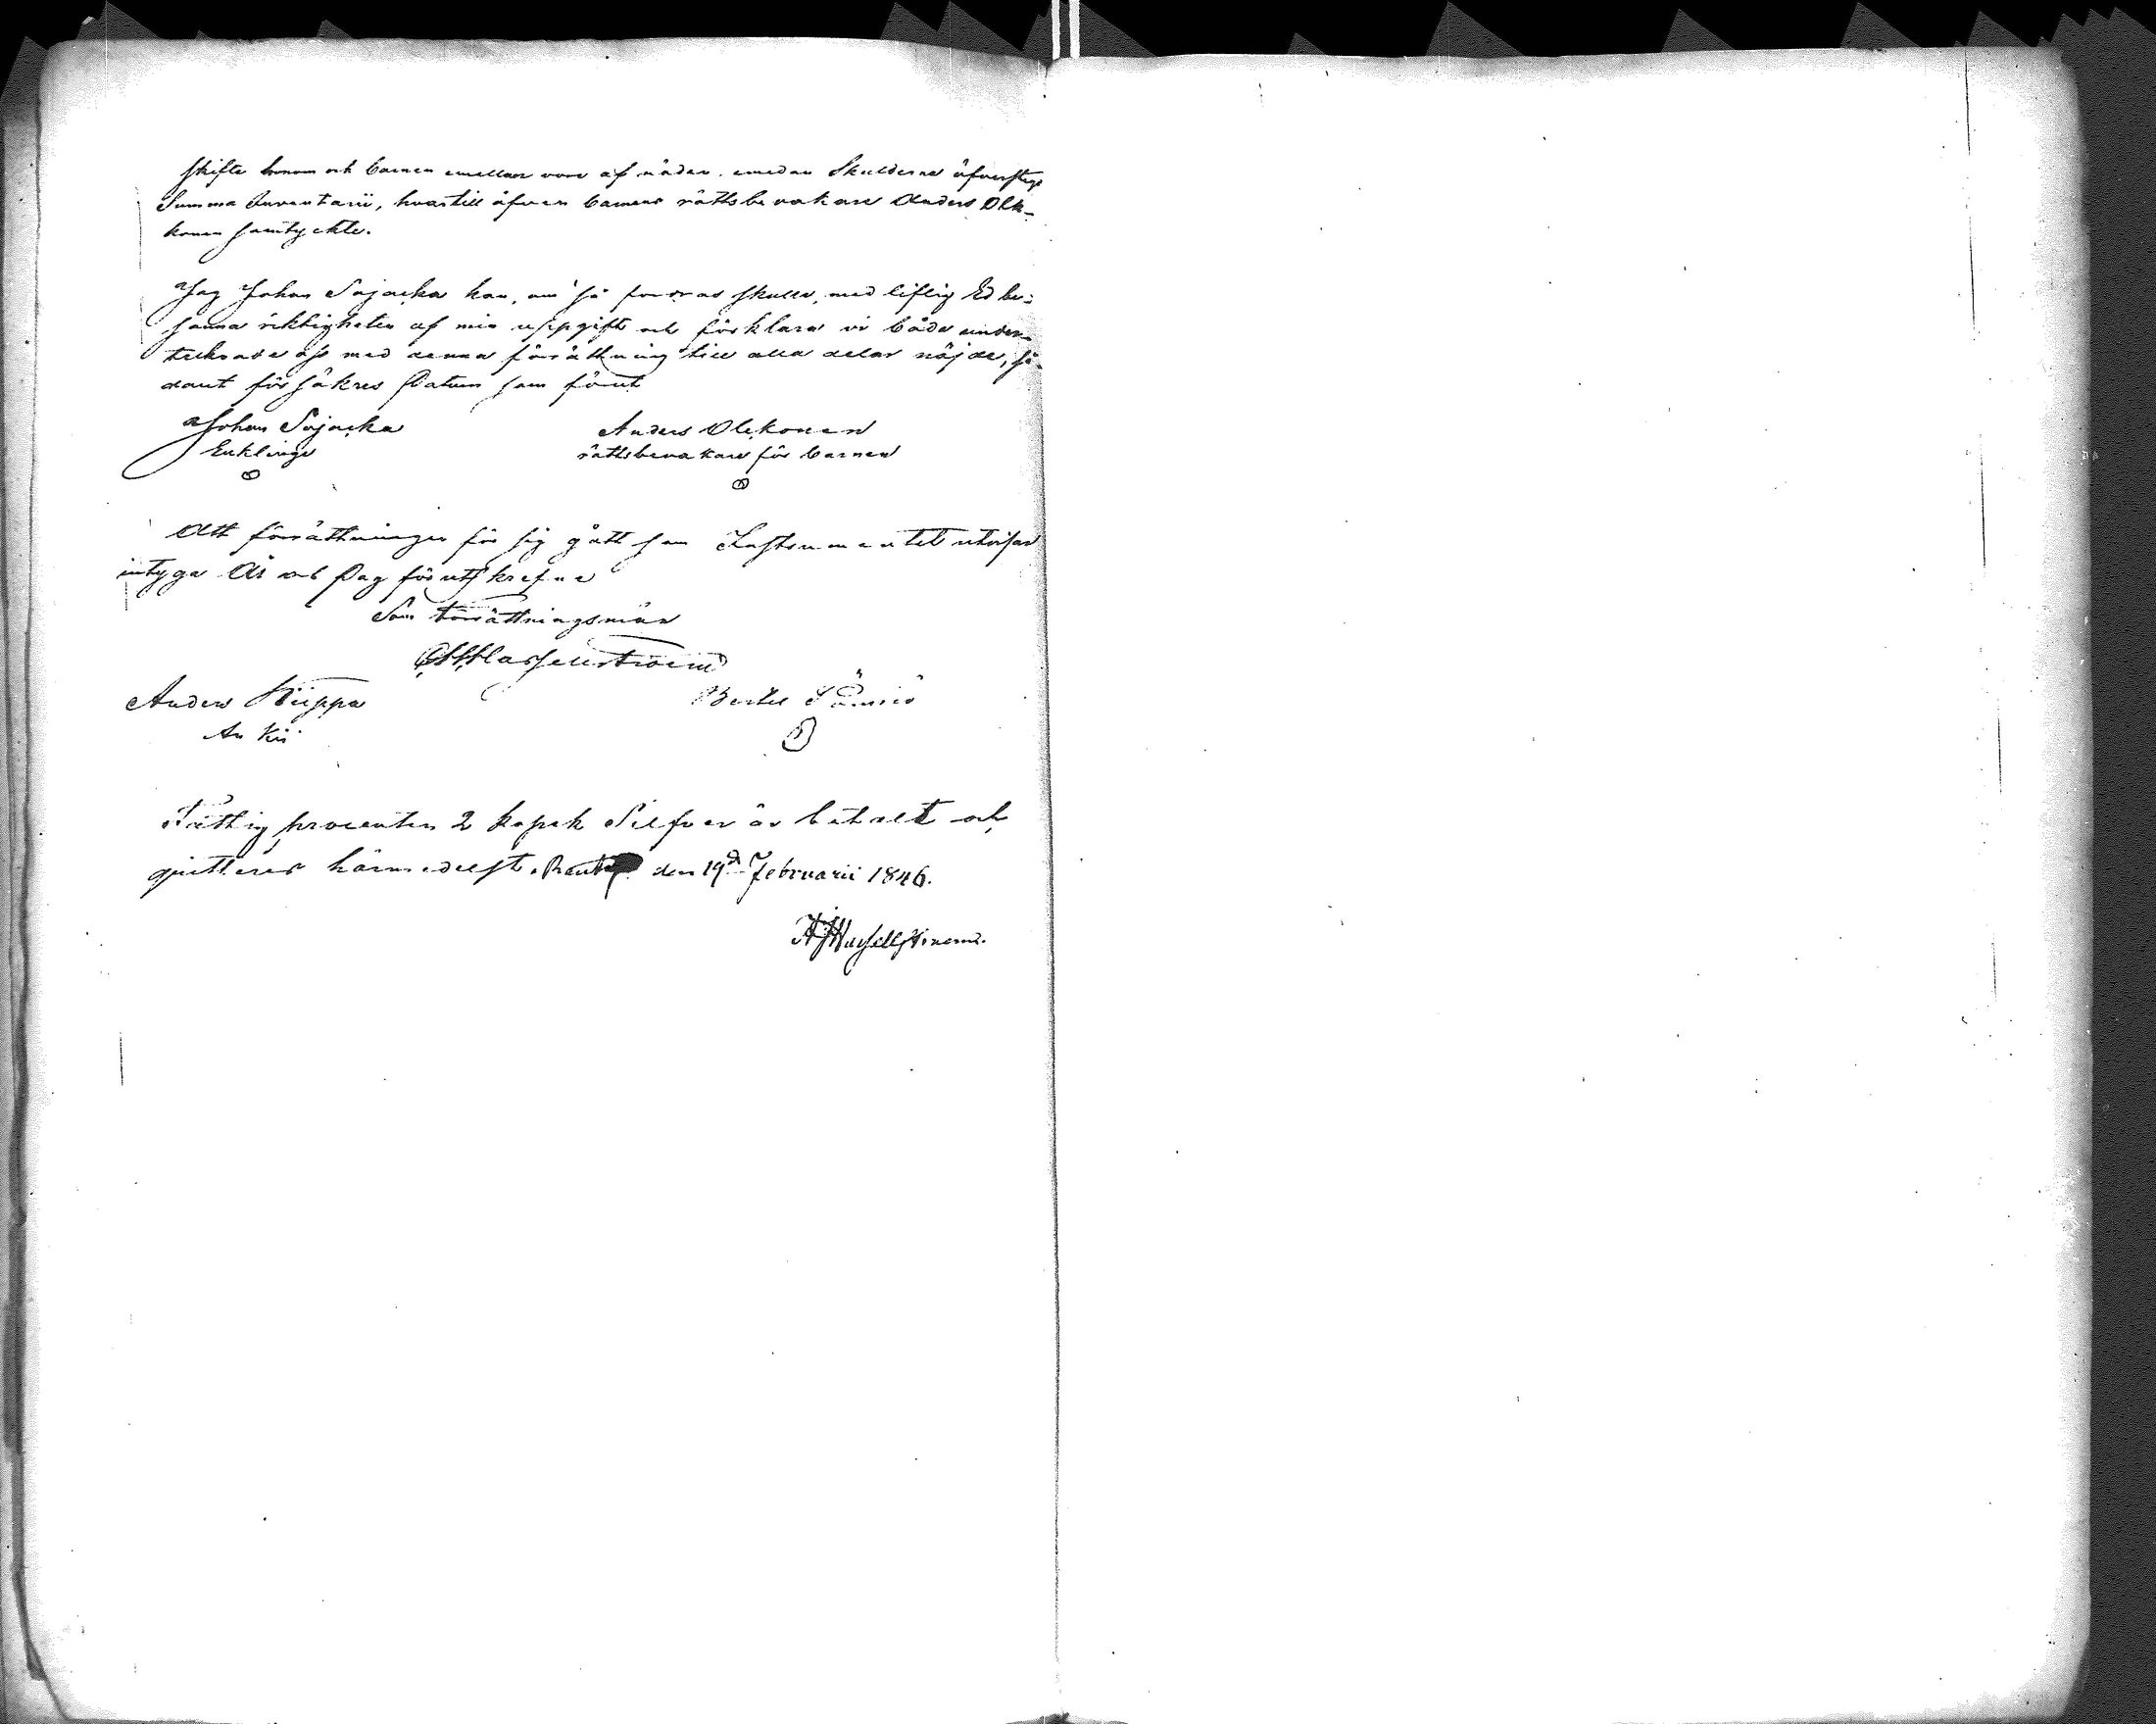 skifte honom och barnen emellan vore af nöden, emedan Skulderne öfverstiga
Summa Inventarii, hvartill äfven barnens rättsbevakare Anders Olk-
konen samtyckte.
Jag Johan Sojacka kan, om så fordras skulle, med liflig Ed be-
sanna riktigheten af min uppgift och förklara vi både under-
tecknade oss med denna förrättning till alla delar nöjde, så-
dant försäkres Datum som förut
Johan Sojacka Anders Olckonen
Enkling rättsbevakare för barnen
Att förrättningen för sig gått som Instrumentet utvisar
intyga År och Dag förutskrefne
Som förrättningsmän
Hassellström
Anders Kiippa Bertel
Fattig procenten 2 kopek Silfver är betalt och
quitteras härmedelst. den 19d Februarii 1846.
Hassellström.